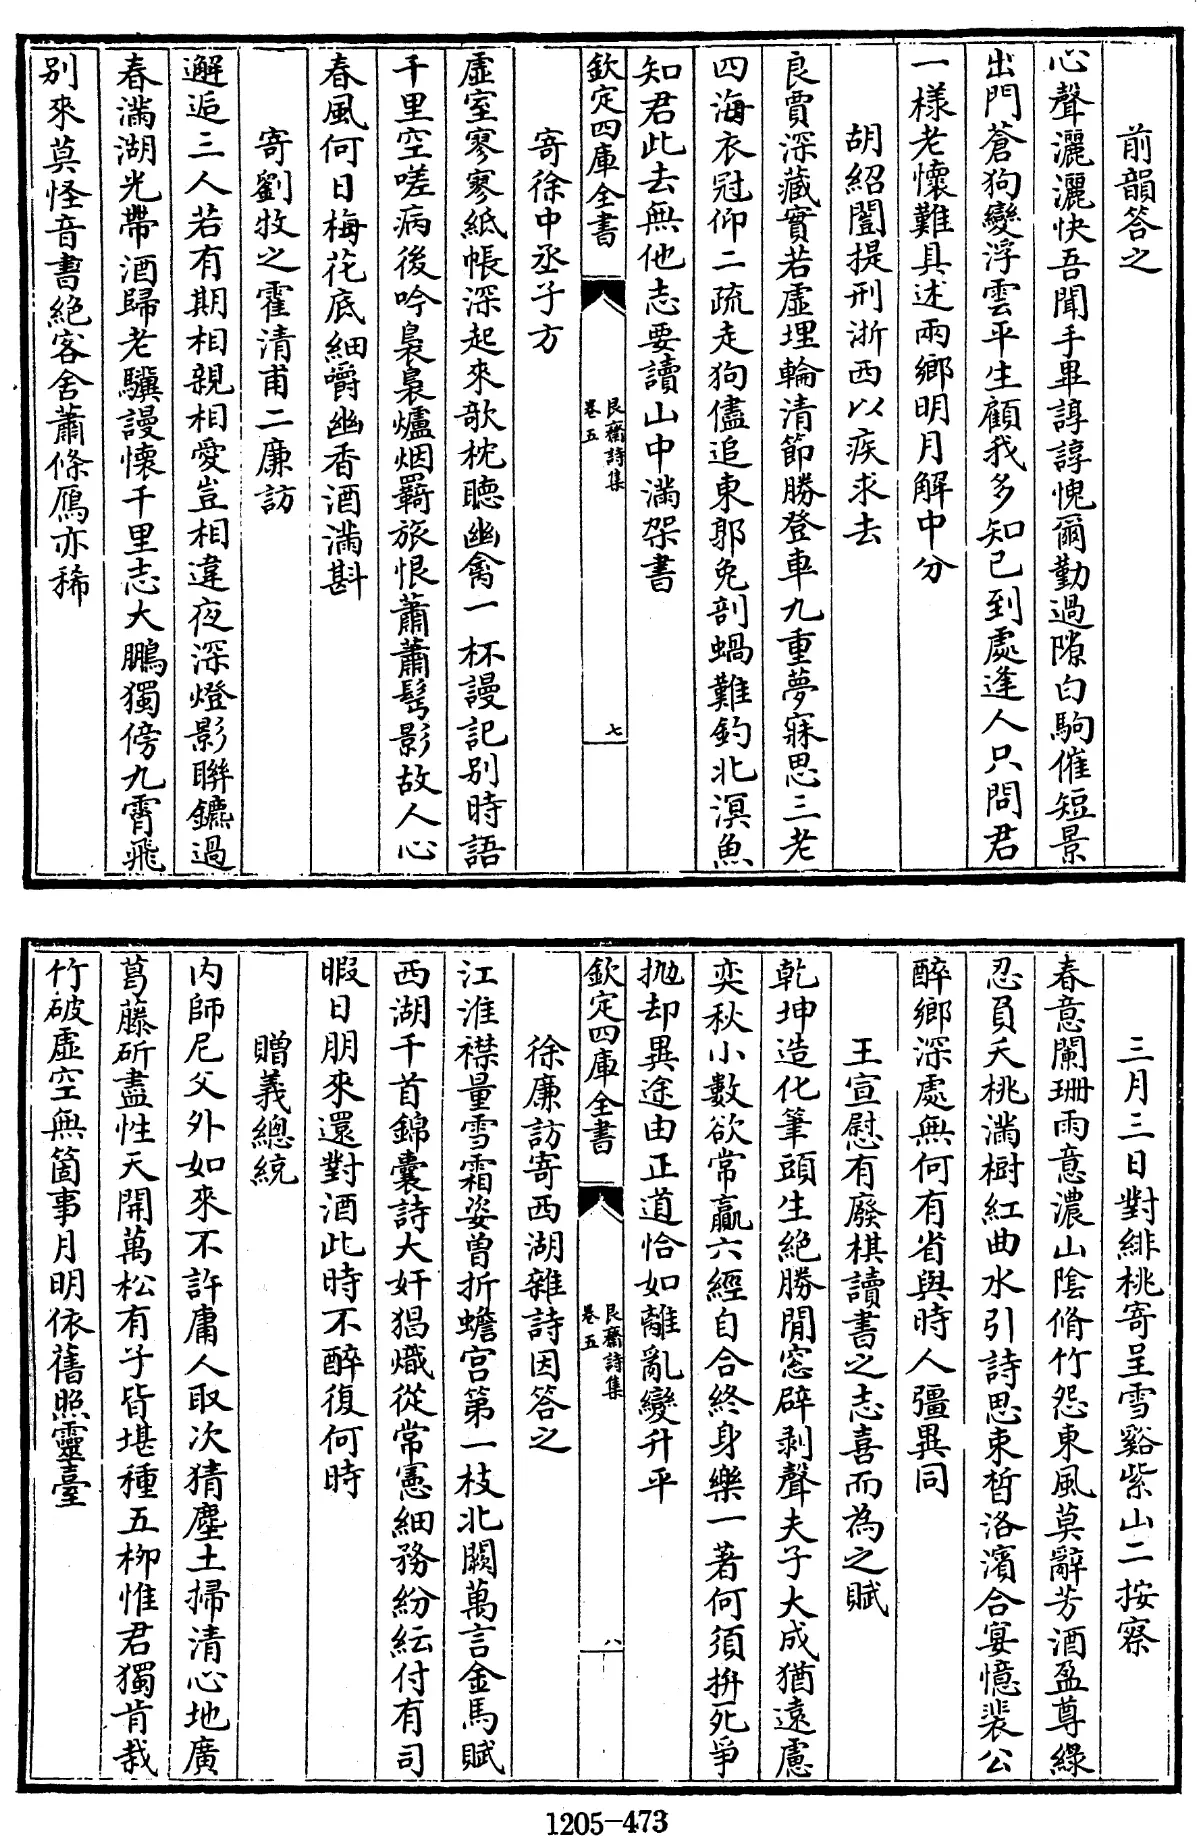 前韻答之
心聲灑灑快吾聞手畢諄諄愧爾勤過隙白駒催短景
出門蒼狗變浮雲平生顧我多知己到處逢人只問君
一樣老懷難具述兩鄉明月解中分
胡紹闓提刑浙西以疾求去
良賈深藏實若虛埋輪清節勝登車九重夢寐思三老
四海衣冠仰二疏走狗儘追東郭兔剖蝸難釣北溟魚
知君此去無他志要讀山中滿架書
欽定四庫全書
艮齋詩集
卷五
七
寄徐中丞子方
虛室寥寥紙帳深起來欹枕聽幽禽一杯謾記別時語
千里空嗟病後吟裊裊爐烟羇旅恨蕭蕭髩影故人心
春風何日梅花底細嚼幽香酒滿斟
寄劉牧之霍清甫二廉訪
邂逅三人若有期相親相愛豈相違夜深燈影聯鑣過
春滿湖光帶酒歸老驥謾懷千里志大鵬獨傍九霄飛
別來莫怪音書絕客舍蕭條鴈亦稀
三月三日對緋桃寄呈雪谿紫山二按察
春意闌珊雨意濃山陰脩竹怨東風莫辭芳酒盈尊綠
忍負夭桃滿樹紅曲水引詩思束晳洛濱合宴憶裴公
醉鄉深處無何有省與時人彊異同
王宣慰有廢棋讀書之志喜而為之賦
乾坤造化筆頭生絕勝閒窓辟剥聲夫子大成猶遠慮
奕秋小數欲常贏六經自合終身樂一著何須拚死爭
抛却異途由正道恰如離亂變升平
欽定四庫全書
艮齋詩集
卷五
八
徐廉訪寄西湖雜詩因答之
江淮襟量雪霜姿曾折蟾宫第一枝北闕萬言金馬賦
西湖千首錦囊詩大奸猖熾從常憲細務紛紜付有司
暇日朋來還對酒此時不醉復何時
贈義總統
内師尼父外如來不許庸人取次猜塵土掃清心地廣
葛藤斫盡性天開萬松有子皆堪種五柳惟君獨肯栽
竹破虛空無箇事月明依舊照靈臺
1205-473